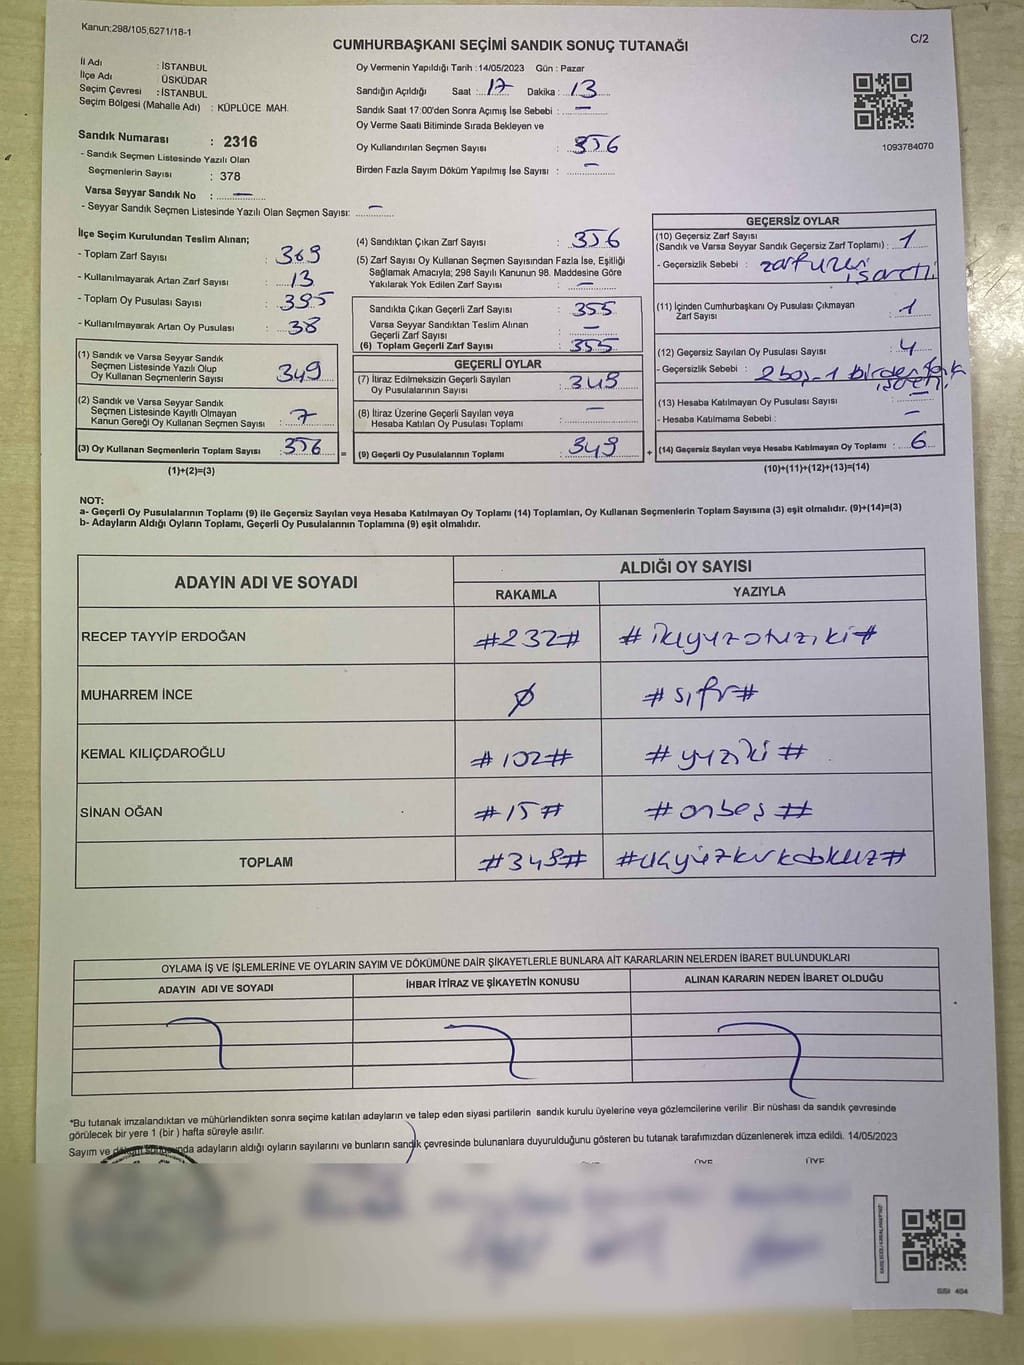 Kanun:298/105,6271/18-1
C/2
CUMHURBAŞKANI SEÇİMİ SANDIK SONUÇ TUTANAĞI
İl Adı : İSTANBUL
İlçe Adı ÜSKÜDAR
Seçim Çevresi : İSTANBUL
Seçim Bölgesi (Mahalle Adı) : KÜPLÜCE MAH.
Oy Vermenin Yapıldığı Tarih :14/05/2023 Gün : Pazar
Sandığın Açıldığı Saat : 17 Dakika : 13
Sandık Saat 17:00'den Sonra Açımış İse Sebebi : —
Oy Verme Saati Bitiminde Sırada Bekleyen ve
Oy Kullandırılan Seçmen Sayısı : 356
Birden Fazla Sayım Döküm Yapılmış İse Sayısı : —
1093784070
Sandık Numarası : 2316
- Sandık Seçmen Listesinde Yazılı Olan
Seçmenlerin Sayısı : 378
Varsa Seyyar Sandık No : —
- Seyyar Sandık Seçmen Listesinde Yazılı Olan Seçmen Sayısı: —
İlçe Seçim Kurulundan Teslim Alınan;
- Toplam Zarf Sayısı : 369
- Kullanılmayarak Artan Zarf Sayısı : 13
- Toplam Oy Pusulası Sayısı : 395
- Kullanılmayarak Artan Oy Pusulası : 38
(1) Sandık ve Varsa Seyyar Sandık
Seçmen Listesinde Yazılı Olup
Oy Kullanan Seçmenlerin Sayısı : 349
(2) Sandık ve Varsa Seyyar Sandık
Seçmen Listesinde Kayıtlı Olmayan
Kanun Gereği Oy Kullanan Seçmen Sayısı : 7
(3) Oy Kullanan Seçmenlerin Toplam Sayısı : 356 =
(1)+(2)=(3)
(4) Sandıktan Çıkan Zarf Sayısı : 356
(5) Zarf Sayısı Oy Kullanan Seçmen Sayısından Fazla İse, Eşitliği
Sağlamak Amacıyla; 298 Sayılı Kanunun 98. Maddesine Göre
Yakılarak Yok Edilen Zarf Sayısı : —
Sandıkta Çıkan Geçerli Zarf Sayısı : 355
Varsa Seyyar Sandıktan Teslim Alınan
Geçerli Zarf Sayısı : —
(6) Toplam Geçerli Zarf Sayısı : 355
GEÇERLİ OYLAR
(7) İtiraz Edilmeksizin Geçerli Sayılan
Oy Pusulalarının Sayısı : 349
(8) İtiraz Üzerine Geçerli Sayılan veya
Hesaba Katılan Oy Pusulası Toplamı : —
(9) Geçerli Oy Pusulalarının Toplamı : 349 +
GEÇERSİZ OYLAR
(10) Geçersiz Zarf Sayısı
(Sandık ve Varsa Seyyar Sandık Geçersiz Zarf Toplamı) : 1
- Geçersizlik Sebebi : zarf üzeri
işaretli
(11) İçinden Cumhurbaşkanı Oy Pusulası Çıkmayan
Zarf Sayısı : 1
(12) Geçersiz Sayılan Oy Pusulası Sayısı : 4
- Geçersizlik Sebebi : 2 boş - 1 birden fazla
(13) Hesaba Katılmayan Oy Pusulası Sayısı : —
- Hesaba Katılmama Sebebi : —
(14) Geçersiz Sayılan veya Hesaba Katılmayan Oy Toplamı : 6
(10)+(11)+(12)+(13)=(14)
NOT:
a- Geçerli Oy Pusulalarının Toplamı (9) ile Geçersiz Sayılan veya Hesaba Katılmayan Oy Toplamı (14) Toplamları, Oy Kullanan Seçmenlerin Toplam Sayısına (3) eşit olmalıdır. (9)+(14)=(3)
b- Adayların Aldığı Oyların Toplamı, Geçerli Oy Pusulalarının Toplamına (9) eşit olmalıdır.
ADAYIN ADI VE SOYADI
ALDIĞI OY SAYISI
RAKAMLA YAZIYLA
RECEP TAYYİP ERDOĞAN #232# #ikiyüzotuziki#
MUHARREM İNCE 0 #sıfır#
KEMAL KILIÇDAROĞLU #102# #yüziki#
SİNAN OĞAN #15# #onbeş#
TOPLAM #349# #üçyüzkırkdokuz#
OYLAMA İŞ VE İŞLEMLERİNE VE OYLARIN SAYIM VE DÖKÜMÜNE DAİR ŞİKAYETLERLE BUNLARA AİT KARARLARIN NELERDEN İBARET BULUNDUKLARI
ADAYIN ADI VE SOYADI İHBAR İTİRAZ VE ŞİKAYETİN KONUSU ALINAN KARARIN NEDEN İBARET OLDUĞU
*Bu tutanak imzalandıktan ve mühürlendikten sonra seçime katılan adayların ve talep eden siyasi partilerin sandık kurulu üyelerine veya gözlemcilerine verilir. Bir nüshası da sandık çevresinde
görülecek bir yere 1 (bir) hafta süreyle asılır.
Sayım ve döküm sonunda adayların aldığı oyların sayılarını ve bunların sandık çevresinde bulunanlara duyurulduğunu gösteren bu tutanak tarafımızdan düzenlenerek imza edildi. 14/05/2023
ÜYE ÜYE
GSI 404